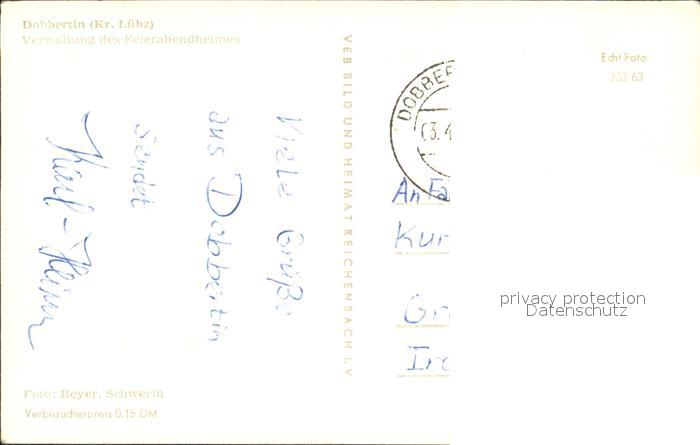 Dobbertin (Kr. Lübz)
Verwaltung des Feierabendheimes
Viele Grüße
aus Dobbertin
sendet
Karl-Heinz
Foto: Beyer, Schwerin
Verbraucherpreis 0.15 DM
VEB BILD UND HEIMAT REICHENBACH I. V.
Echt Foto
333 63
DOBBER
3.4
An Fa
Kur
Gr
privacy protection
Datenschutz